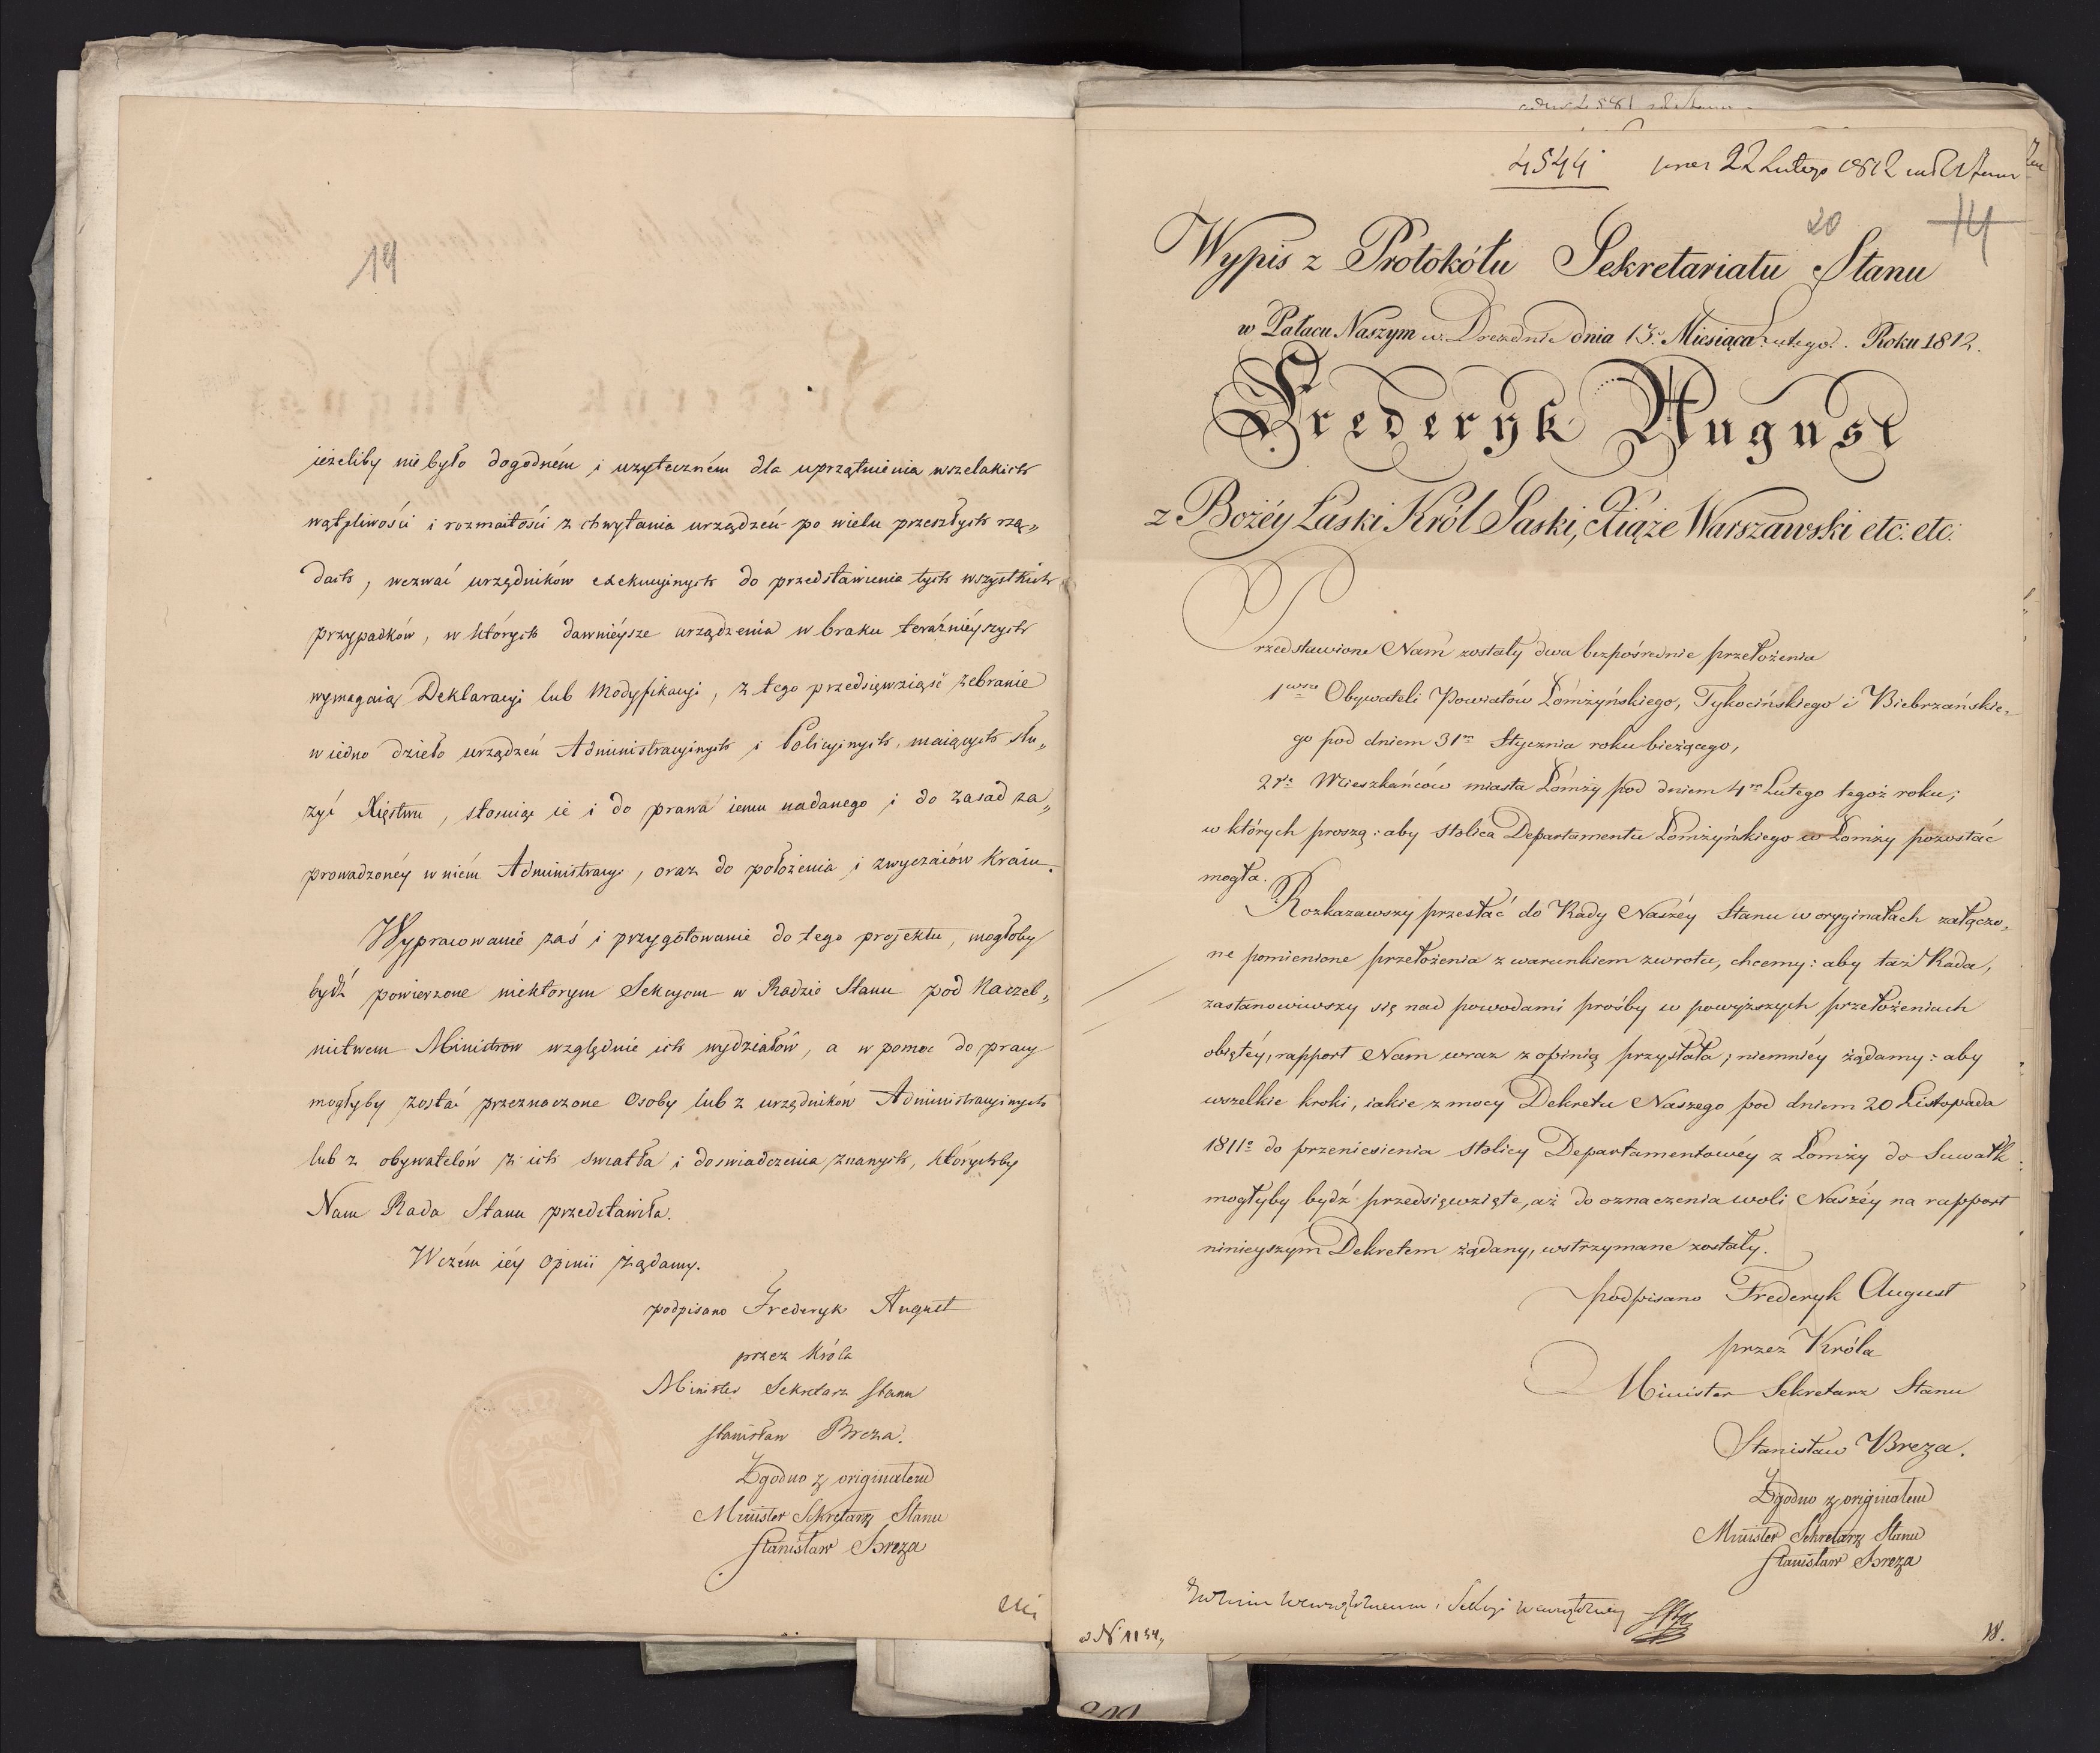 19
ieżeliby nie było dogodném i użyteczném dla uprzątnienia wszelakich
wątpliwości i rozmaitości z chwytania urządzeń po wielu przeszłych rzą„
dach, wezwać urzędników exekucyinych do przedstawienia tych wszystkich
przypadków, w których dawnieysze urządzenia w braku teraźnieyszych
wymagaią Deklaracyi lub Modyfikacyi, z tego przedsięwziąść zebranie
w iedno dzieło urządzeń Administracyinych i Policyinych, maiących słu„
żyć Xięstwu, stosuiąc ie i do prawa iemu nadanego i do zasad za„
prowadzonéy w niém Administracyi, oraz do położenia i zwyczaiów Kraiu.
Wypracowanie zaś i przygotowanie do tego projektu, mogłoby
bydź powierzone niektorym Sekcyom w Radzie Stanu pod Naczel„
nictwem Ministrow względnie ich wydziałów, a w pomoc do pracy
mogłyby zostać przeznaczone Osoby lub z urzędników Administracyinych
lub z obywatelów z ich światła i doswiadczenia znanych, którychby
Nam Rada Stanu przedstawiła.
W czém iéy Opinii żądamy.
podpisano Frederyk August
przez Króla
Minister Sekretarz Stanu
Stanisław Breza.
Zgodno z originałem
Minister Sekretarz Stanu
Stanisław Breza
4544 22 Lutego 1812
20 14
Wypis z Protokółu Sekretariatu Stanu
w Pałacu Naszym w Dreznie dnia 13. Miesiąca Lutego. Roku 1812.
Frederyk August
z Bożéy Łaski Król Saski, Xiąże Warszawski etc: etc:
Przedstawione Nam zostały dwa bezpośrednie przełożenia
1wsze Obywateli Powiatów Łomżyńskiego, Tykocińskiego i Biebrzańskie„
go pod dniem 31m Stycznia roku bieżącego,
2gie Mieszkańców miasta Łomży pod dniem 4m Lutego tegoż roku;
w których proszą: aby stolica Departamentu Łomżyńskiego w Łomży pozostać
mogła.
Rozkazawszy przesłać do Rady Naszéy Stanu w oryginałach załączo„
ne pomienione przełożenia z warunkiem zwrotu, chcemy: aby taż Rada,
zastanowiwszy się nad powodami prośby w powyższych przełożeniach
obiętéy, rapport Nam wraz z opinią przysłała; niemniéy żądamy: aby
wszelkie kroki, iakie z mocy Dekretu Naszego pod dniem 20 Listopada
1811o do przeniesienia stolicy Departamentowéy z Łomży do Suwałk
mogłyby bydź przedsięwzięte, aż do oznaczenia woli Naszéy na rapport
ninieyszym Dekretem żądany, wstrzymane zostały.
podpisano Frederyk August
przez Króla
Minister Sekretarz Stanu
Stanisław Breza.
Zgodno z originałem
Minister Sekretarz Stanu
Stanisław Breza
i Sekcyi
N 1134„
18.